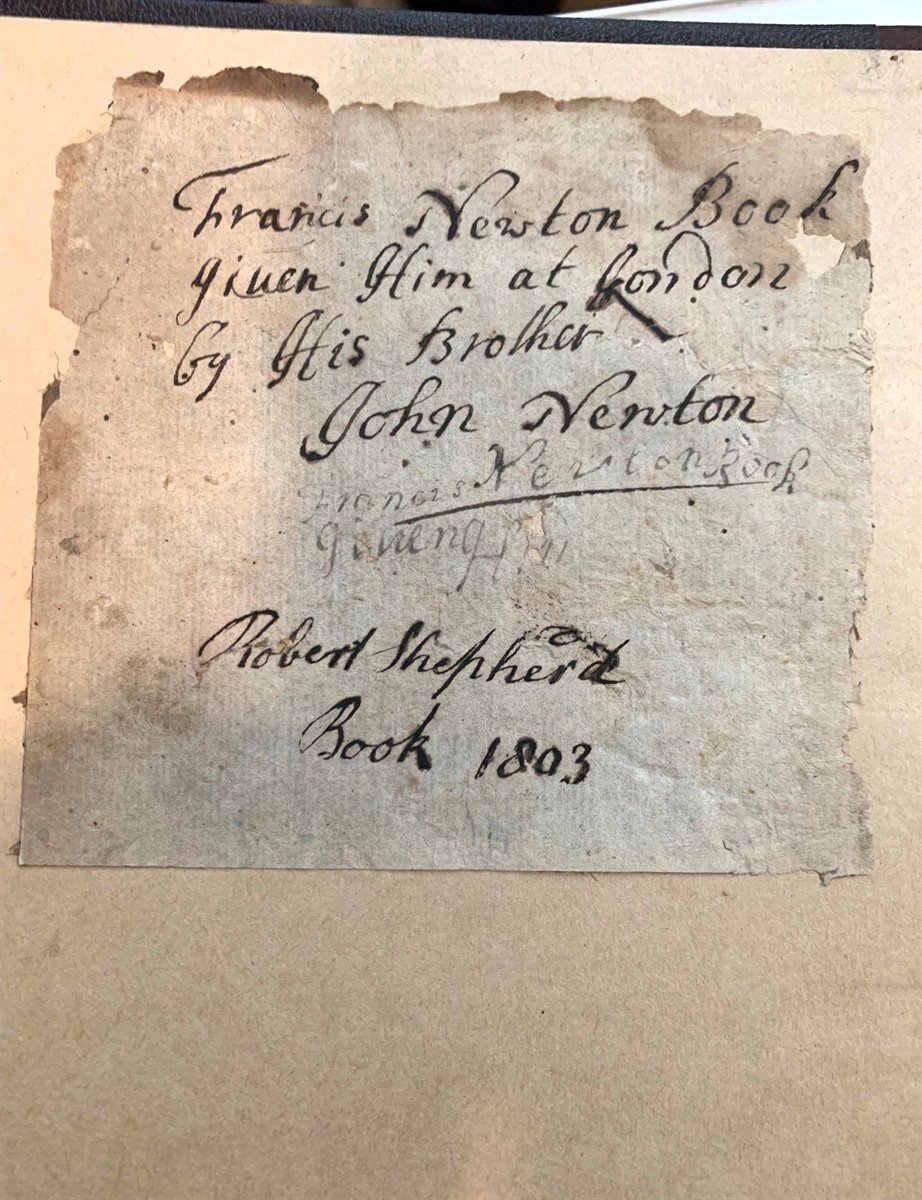 Francis Newton Book
giuen Him at London
by His Brother
John Newton
Francis Newton Book
giueng
Robert Shepherd
Book 1803